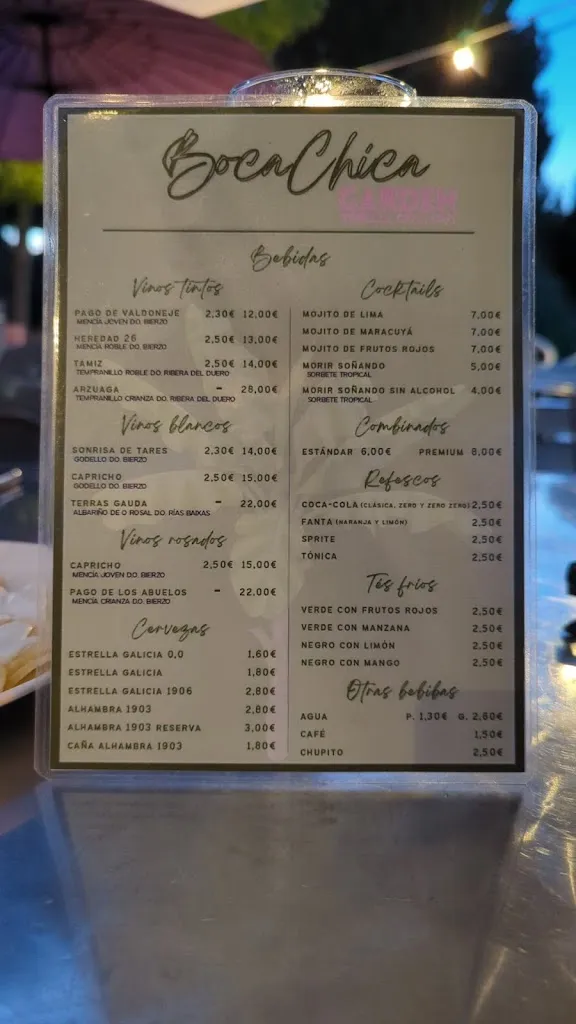 BocaChica
GARDEN
Bebidas
Vinos tintos
PAGO DE VALDONEJE 2,30€ 12,00€
MENCÍA JOVEN D.O. BIERZO
HEREDAD 26 2,50€ 13,00€
MENCÍA ROBLE D.O. BIERZO
TAMIZ 2,50€ 14,00€
TEMPRANILLO ROBLE D.O. RIBERA DEL DUERO
ARZUAGA - 28,00€
TEMPRANILLO CRIANZA D.O. RIBERA DEL DUERO
Vinos blancos
SONRISA DE TARES 2,30€ 14,00€
GODELLO D.O. BIERZO
CAPRICHO 2,50€ 15,00€
GODELLO D.O. BIERZO
TERRAS GAUDA - 22,00€
ALBARIÑO DE O ROSAL D.O. RÍAS BAIXAS
Vinos rosados
CAPRICHO 2,50€ 15,00€
MENCÍA JOVEN D.O. BIERZO
PAGO DE LOS ABUELOS - 22,00€
MENCÍA CRIANZA D.O. BIERZO
Cervezas
ESTRELLA GALICIA 0,0 1,60€
ESTRELLA GALICIA 1,80€
ESTRELLA GALICIA 1906 2,80€
ALHAMBRA 1903 2,80€
ALHAMBRA 1903 RESERVA 3,00€
CAÑA ALHAMBRA 1903 1,80€
Cocktails
MOJITO DE LIMA 7,00€
MOJITO DE MARACUYÁ 7,00€
MOJITO DE FRUTOS ROJOS 7,00€
MORIR SOÑANDO 5,00€
SORBETE TROPICAL
MORIR SOÑANDO SIN ALCOHOL 4,00€
SORBETE TROPICAL
Combinados
ESTÁNDAR 6,00€ PREMIUM 8,00€
Refescos
COCA-COLA (CLÁSICA, ZERO Y ZERO ZERO) 2,50€
FANTA (NARANJA Y LIMÓN) 2,50€
SPRITE 2,50€
TÓNICA 2,50€
Tés fríos
VERDE CON FRUTOS ROJOS 2,50€
VERDE CON MANZANA 2,50€
NEGRO CON LIMÓN 2,50€
NEGRO CON MANGO 2,50€
Otras bebibas
AGUA P. 1,30€ G. 2,60€
CAFÉ 1,50€
CHUPITO 2,50€